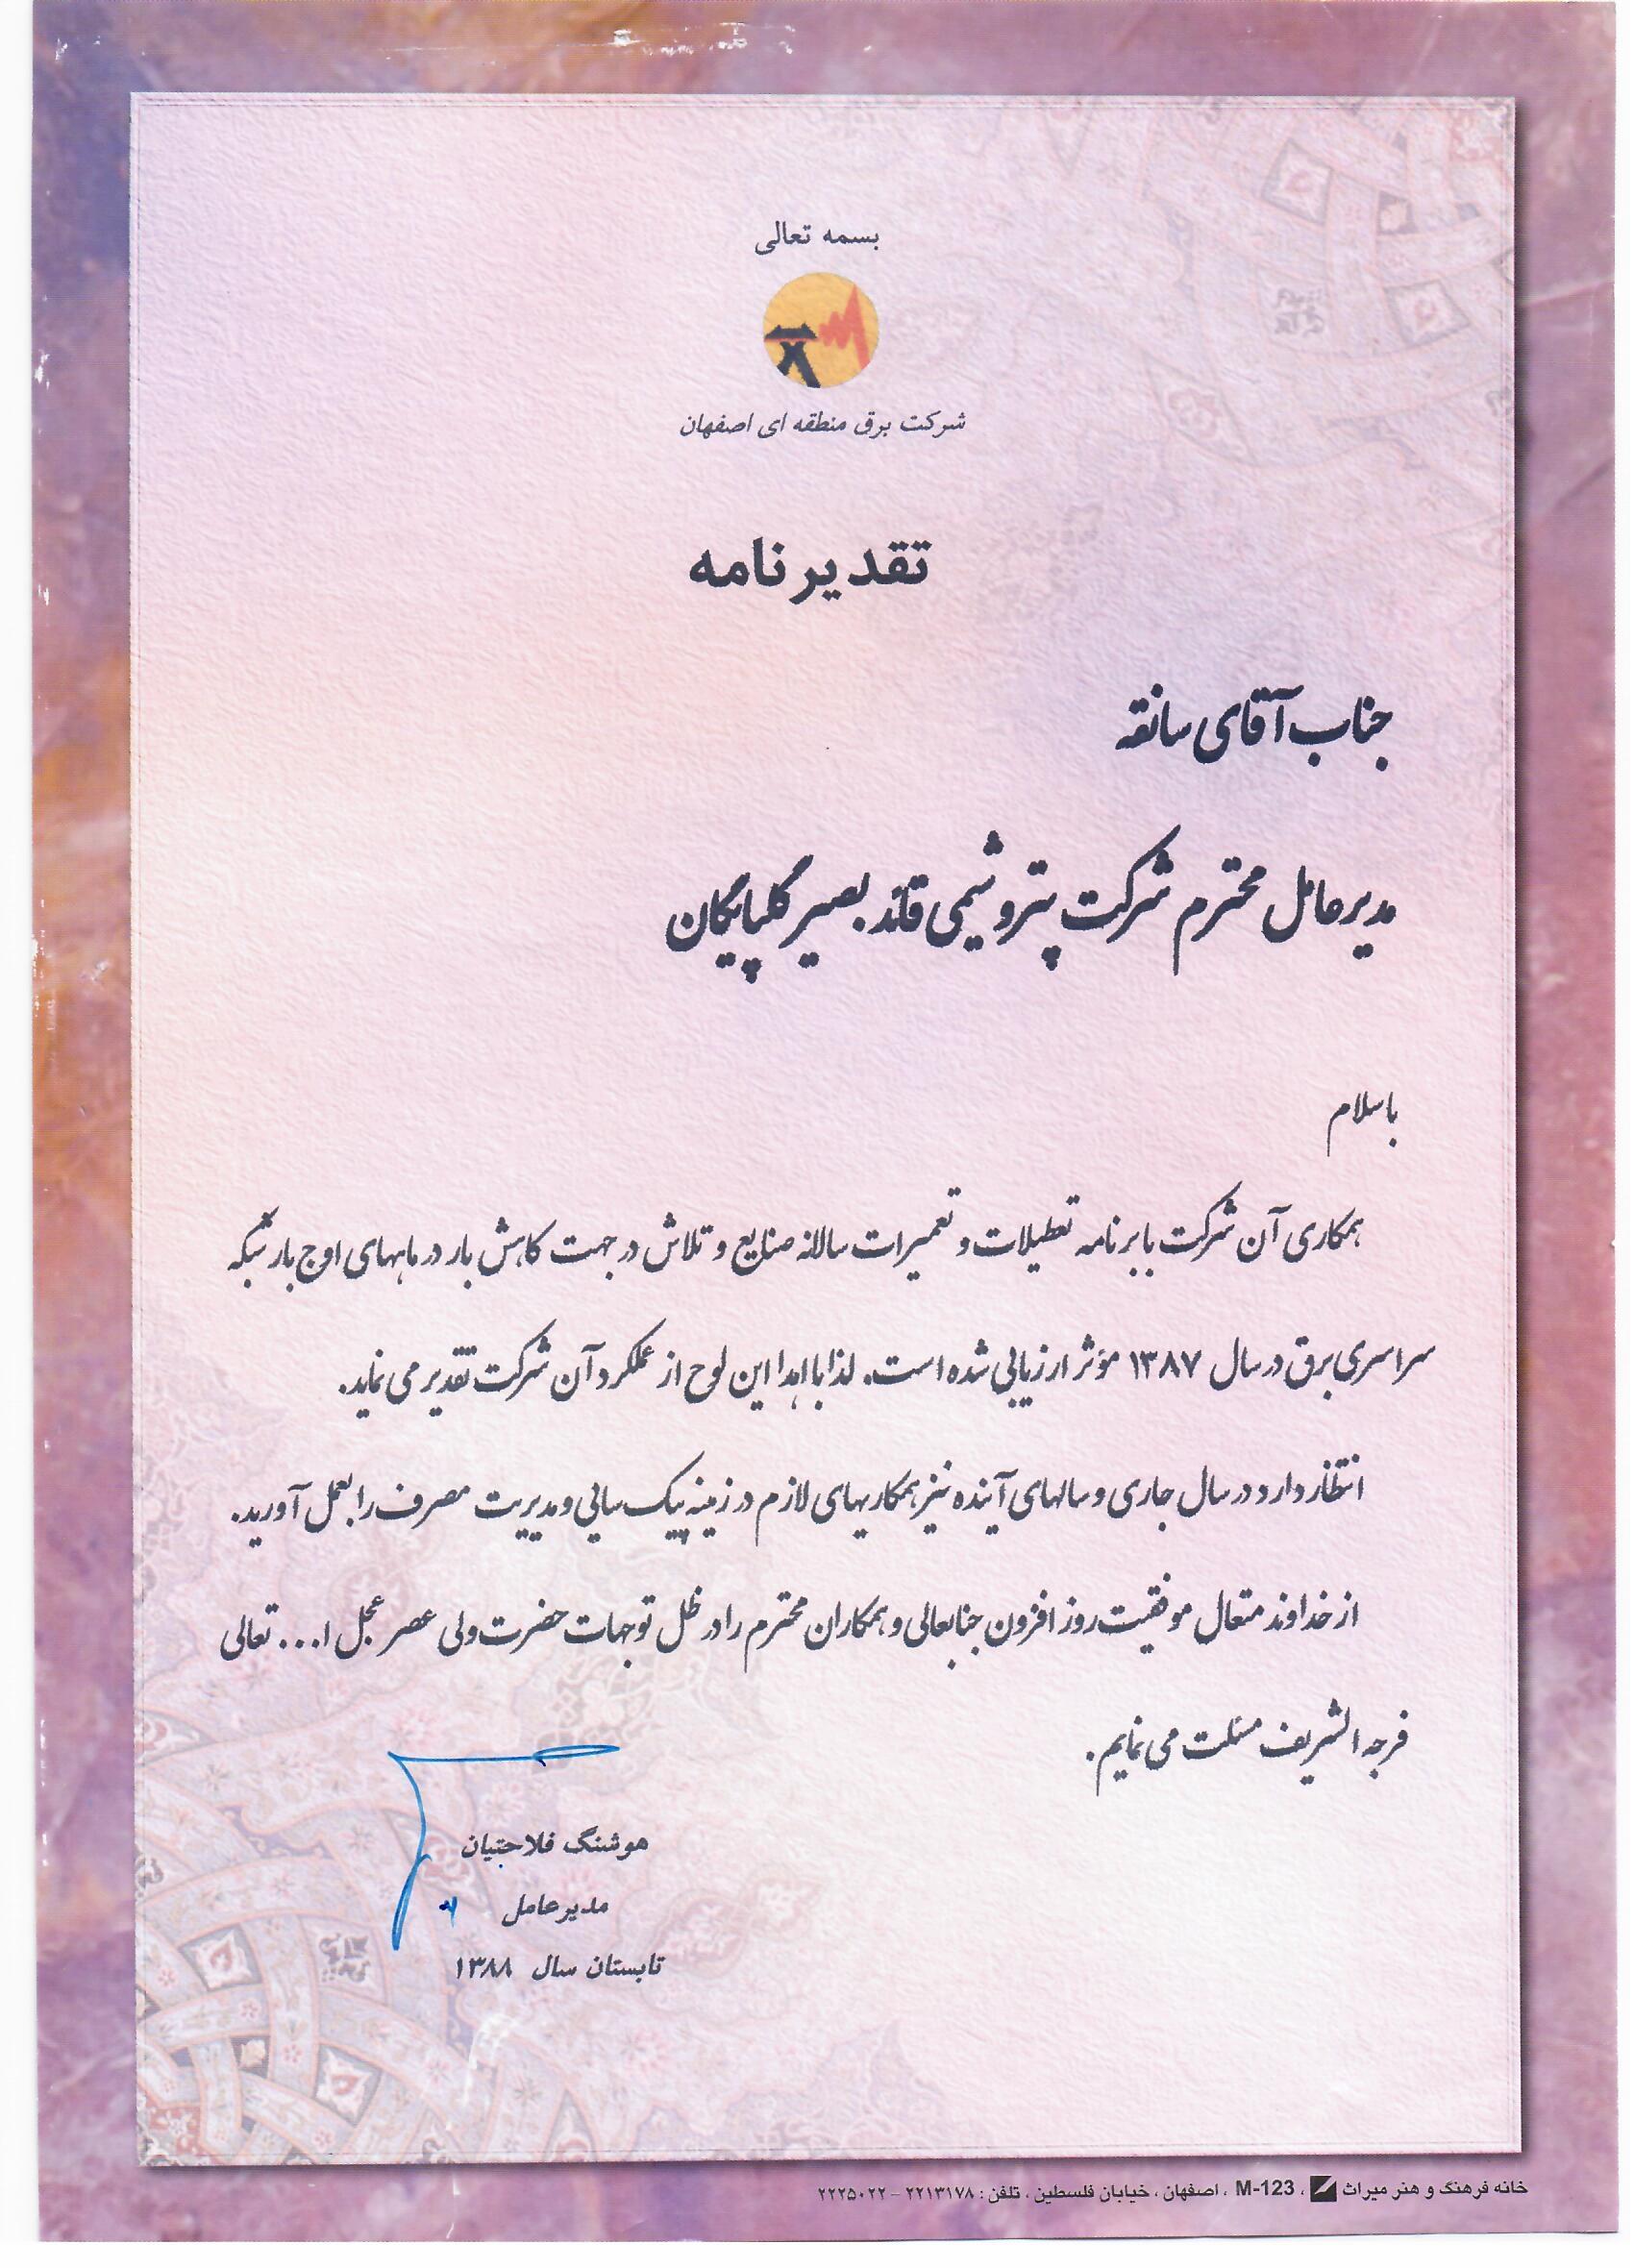 بسمه تعالی
شرکت برق منطقه ای اصفهان
تقدیرنامه
جناب آقای سانقه
مدیرعامل محترم شرکت پتروشیمی قائد بصیر گلپایگان
باسلام
همکاری آن شرکت با برنامه تعطیلات و تعمیرات سالانه صنایع و تلاش در جهت کاهش بار در ماههای اوج بار شبکه
سراسری برق در سال ۱۳۸۷ مؤثر ارزیابی شده است. لذا با اهدا این لوح از عملکرد آن شرکت تقدیر می نماید.
انتظار دارد در سال جاری و سالهای آینده نیز همکاریهای لازم در زمینه پیک سایی و مدیریت مصرف را بعمل آورید.
از خداوند متعال موفقیت روز افزون جنابعالی و همکاران محترم را در ظل توجهات حضرت ولی عصر عجل ا... تعالی
فرجه الشریف مسئلت می نمایم.
هوشنگ فلاحتیان
مدیرعامل
تابستان سال ۱۳۸۸
خانه فرهنگ و هنر میراث ، M-123 ، اصفهان ، خیابان فلسطین ، تلفن : ۲۲۱۳۱۷۸ - ۲۲۲۵۰۲۲